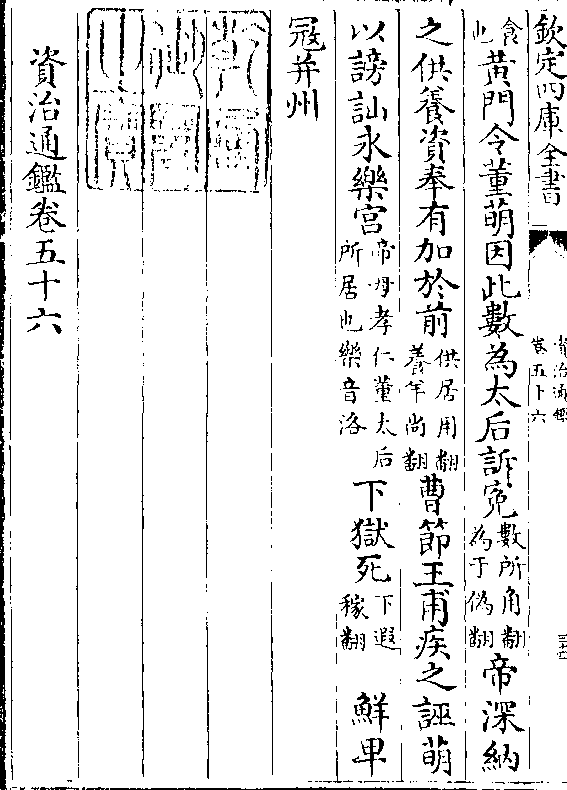 欽定四庫全書
資治通鑑
卷五十六
食
也黄門令董萌因此數為太后訴寃數所角翻
為于偽翻帝深納
之供養資奉有加於前供居用翻
養羊尚翻曹節王甫疾之誣萌
以謗訕永樂宫帝母孝仁董太后
所居也樂音洛下獄死下遐
稼翻鮮卑
寇并州
資治通鑑卷五十六